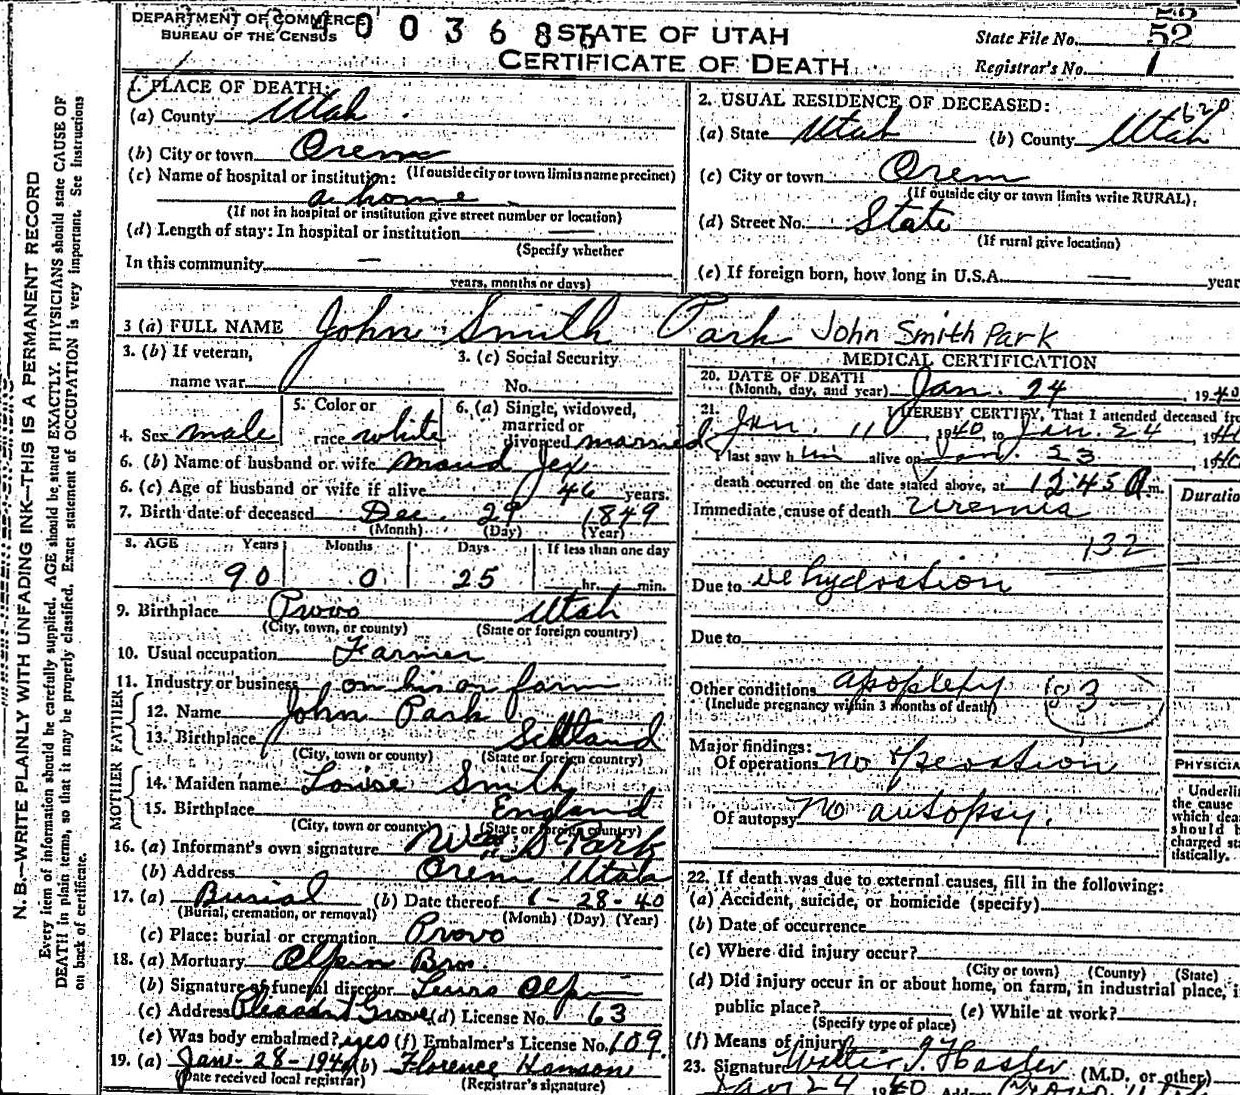 DEPARTMENT OF COMMERCE
BUREAU OF THE CENSUS
0 0 3 6 8 5
STATE OF UTAH
CERTIFICATE OF DEATH
State File No. 52
Registrar's No. 1
1. PLACE OF DEATH:
(a) County Utah
(b) City or town Orem
(If outside city or town limits name precinct)
(c) Name of hospital or institution:
a home
(If not in hospital or institution give street number or location)
(d) Length of stay: In hospital or institution —
(Specify whether
In this community —
years, months or days)
2. USUAL RESIDENCE OF DECEASED:
(a) State Utah (b) County Utah
(c) City or town Orem
(If outside city or town limits write RURAL)
(d) Street No. State
(If rural give location)
(e) If foreign born, how long in U.S.A. — year
3 (a) FULL NAME John Smith Park John Smith Park
3. (b) If veteran,
name war
3. (c) Social Security
No.
4. Sex male
5. Color or
race white
6. (a) Single, widowed,
married or
divorced married
6. (b) Name of husband or wife Maud Jex
6. (c) Age of husband or wife if alive 46 years.
7. Birth date of deceased Dec. 29 1849
(Month) (Day) (Year)
8. AGE Years Months Days If less than one day
90 0 25 hr. min.
9. Birthplace Provo Utah
(City, town, or county) (State or foreign country)
10. Usual occupation Farmer
11. Industry or business on his on farm
FATHER
12. Name John Park
13. Birthplace Scotland
(City, town or county) (State or foreign country)
MOTHER
14. Maiden name Louise Smith
15. Birthplace England
(City, town or county) (State or foreign country)
16. (a) Informant's own signature Park
(b) Address Orem Utah
17. (a) Burial (b) Date thereof 1-28-40
(Burial, cremation, or removal) (Month) (Day) (Year)
(c) Place: burial or cremation Provo
18. (a) Mortuary Olpin Bros.
(b) Signature of funeral director Lewis Olpin
(c) Address Pleasant Grove (d) License No. 63
(e) Was body embalmed? yes (f) Embalmer's License No. 109
19. (a) Jan-28-1940 (b) Florence Hansone
(Date received local registrar) (Registrar's signature)
MEDICAL CERTIFICATION
20. DATE OF DEATH
(Month, day, and year) Jan. 24, 1940
21. I HEREBY CERTIFY, That I attended deceased fro
Jan. 11, 1940, to Jan. 24, 1940
I last saw him alive on Jan. 23, 1940
death occurred on the date stated above, at 12:45 m.
Immediate cause of death Uremia
Duratio
132
Due to dehydration
Due to
Other conditions apoplexy 83
(Include pregnancy within 3 months of death)
Major findings:
Of operations no operation
Of autopsy No autopsy.
PHYSICIA
Underlin
the cause
which dea
should b
charged sta
tistically.
22. If death was due to external causes, fill in the following:
(a) Accident, suicide, or homicide (specify)
(b) Date of occurrence
(c) Where did injury occur?
(City or town) (County) (State)
(d) Did injury occur in or about home, on farm, in industrial place, i
public place? (e) While at work?
(Specify type of place)
(f) Means of injury
23. Signature Walter T. Hasler (M.D. or other)
Jan 24 1940 Address Provo, Utah
N. B.—WRITE PLAINLY WITH UNFADING INK—THIS IS A PERMANENT RECORD
Every item of information should be carefully supplied. AGE should be stated EXACTLY. PHYSICIANS should state CAUSE OF
DEATH in plain terms, so that it may be properly classified. Exact statement of OCCUPATION is very important. See instructions
on back of certificate.